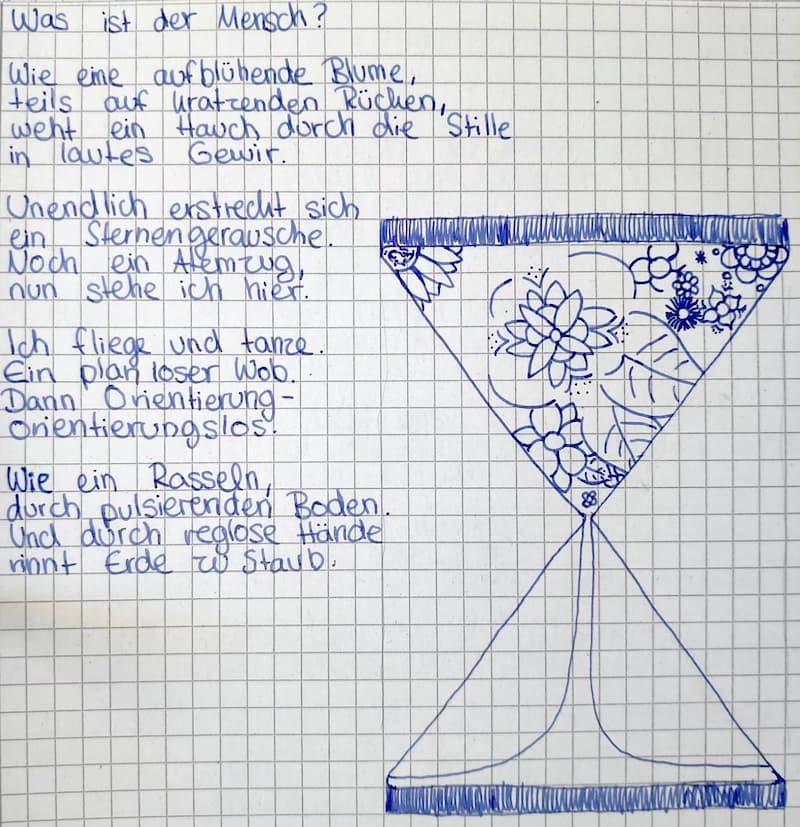 Was ist der Mensch?
Wie eine aufblühende Blume,
teils auf kratzenden Rücken,
weht ein Hauch durch die Stille
in lautes Gewir.
Unendlich erstreckt sich
ein Sternengeräusche.
Noch ein Atemzug,
nun stehe ich hier.
Ich fliege und tanze.
Ein planloser Wob.
Dann Orientierung-
orientierungslos.
Wie ein Rasseln,
durch pulsierenden Boden.
Und durch reglose Hände
rinnt Erde zu Staub.